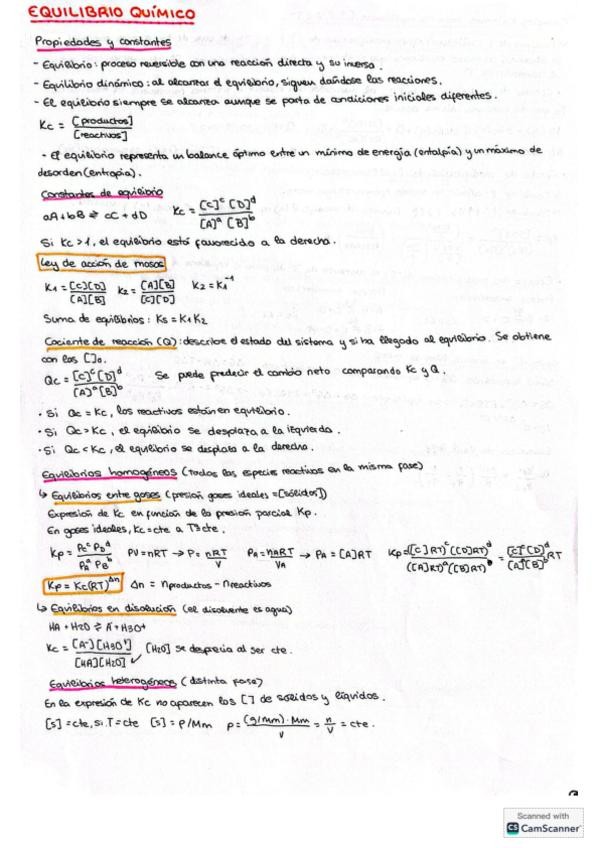 EQUILIBRIO QUÍMICO
Propiedades y constantes
- Equilibrio: proceso reversible con una reacción directa y su inversa.
- Equilibrio dinámico: al alcanzar el equilibrio, siguen dándose las reacciones.
- El equilibrio siempre se alcanza aunque se parta de condiciones iniciales diferentes.
Kc = [productos] / [reactivos]
- El equilibrio representa un balance óptimo entre un mínimo de energía (entalpía) y un máximo de
desorden (entropía).
Constantes de equilibrio
aA + bB ⇌ cC + dD Kc = [C]^c [D]^d / [A]^a [B]^b
Si Kc > 1, el equilibrio está favorecido a la derecha.
Ley de acción de masas
K1 = [C][D] / [A][B] K2 = [A][B] / [C][D] K2 = K1^-1
Suma de equilibrios: Ks = K1 K2
Cociente de reacción (Q): describe el estado del sistema y si ha llegado al equilibrio. Se obtiene
con las []o.
Qc = [C]^c [D]^d / [A]^a [B]^b Se puede predecir el cambio neto comparando Kc y Q.
· Si Qc = Kc, los reactivos están en equilibrio.
· Si Qc > Kc, el equilibrio se desplaza a la izquierda.
· Si Qc < Kc, el equilibrio se desplaza a la derecha.
Equilibrios homogéneos (todas las especies reactivas en la misma fase)
↳ Equilibrios entre gases (presión gases ideales = [sólidos])
Expresión de Kc en función de la presión parcial Kp.
En gases ideales, Kc = cte a Tª cte.
Kp = Pc^c PD^d / PA^a PB^b PV = nRT → P = nRT / V PA = nART / VA → PA = [A]RT Kp = ([C]RT)^c ([D]RT)^d / ([A]RT)^a ([B]RT)^b = [C]^c [D]^d / [A]^a [B]^b RT
Kp = Kc(RT)^Δn Δn = nproductos - nreactivos
↳ Equilibrios en disolución (el disolvente es agua)
HA + H2O ⇌ A^- + H3O^+
Kc = [A^-][H3O^+] / [HA][H2O] [H2O] se desprecia al ser cte.
Equilibrios heterogéneos (distinta fase)
En la expresión de Kc no aparecen los [] de sólidos y líquidos.
[s] = cte, si T = cte [s] = ρ/Mm ρ = (g/mm) · Mm / V = n / V = cte.
Scanned with
CS CamScanner